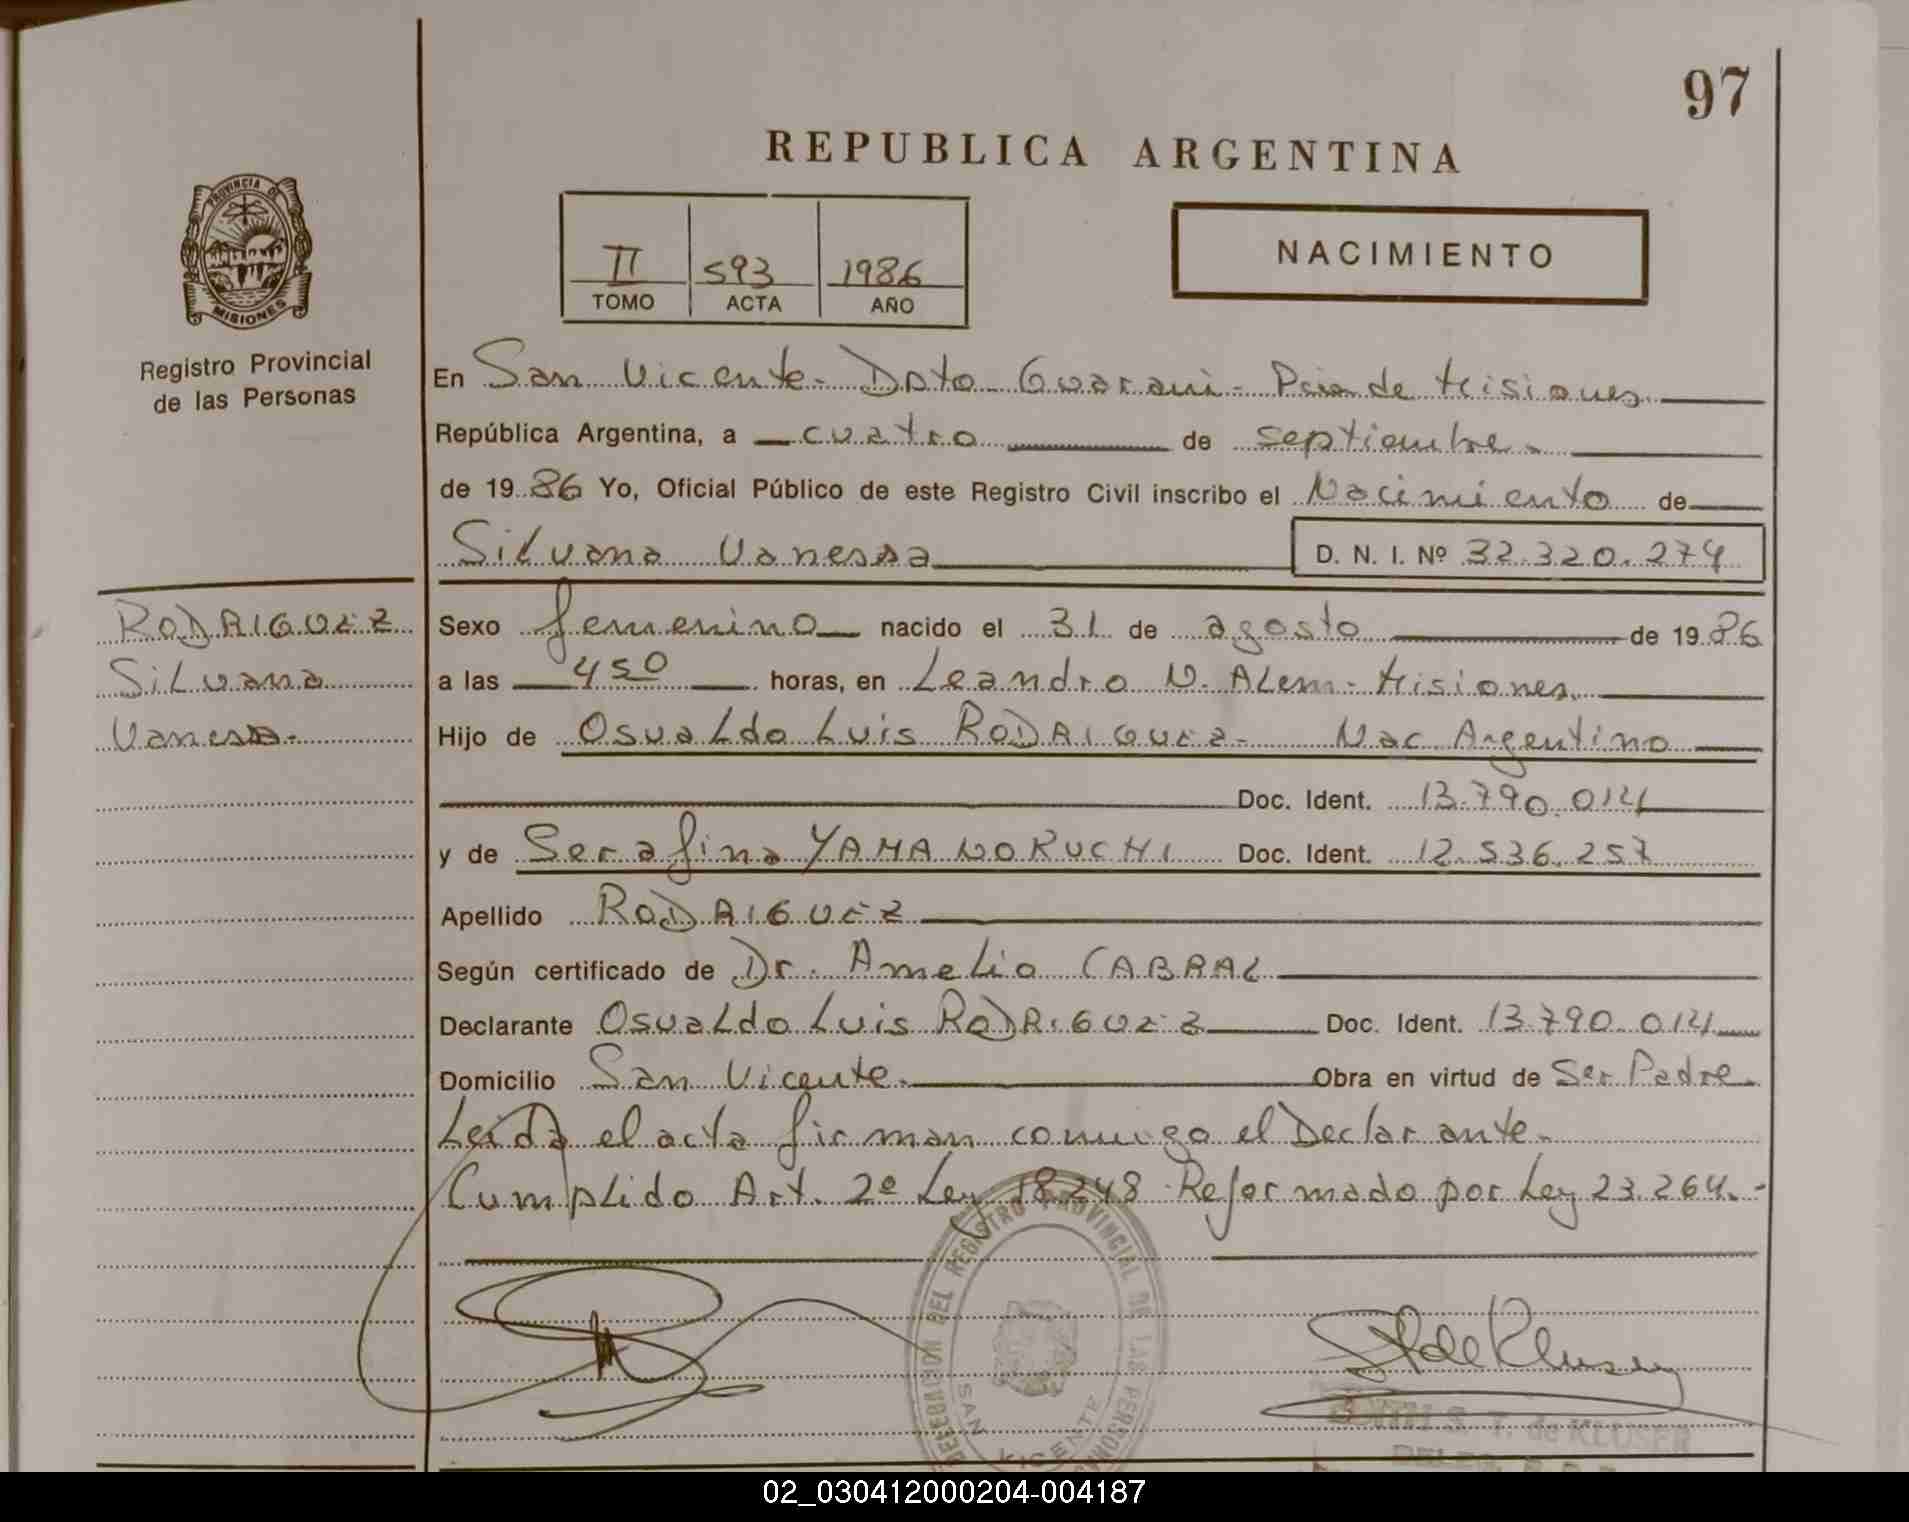 97
REPUBLICA ARGENTINA
PROVINCIA DE
MISIONES
Registro Provincial
de las Personas
II 593 1986
TOMO ACTA AÑO
NACIMIENTO
En San Vicente - Dpto Guarani - Pcia de Misiones
República Argentina, a cuatro de septiembre
de 19 86 Yo, Oficial Público de este Registro Civil inscribo el Nacimiento de
Silvana Vanessa D. N. I. Nº 32.320.274
RODRIGUEZ
Silvana
Vanessa.
Sexo femenino nacido el 31 de agosto de 19 86
a las 4 50 horas, en Leandro N. Alem - Misiones
Hijo de Osvaldo Luis RODRIGUEZ - Nac Argentino
Doc. Ident. 13.790.014
y de Serafina YAMANORUCHI Doc. Ident. 12.536.257
Apellido RODRIGUEZ
Según certificado de Dr. Amelio CABRAL
Declarante Osvaldo Luis RODRIGUEZ Doc. Ident. 13.790.014
Domicilio San Vicente. Obra en virtud de Ser Padre
Leida el acta firman conmigo el Declarante.
Cumplido Art. 2º Ley 18248 Reformado por Ley 23.264.-
DELEGACION DEL REGISTRO PROVINCIAL DE LAS PERSONAS
SAN VICENTE
EDITH S. T. de KLUSER
02_030412000204-004187